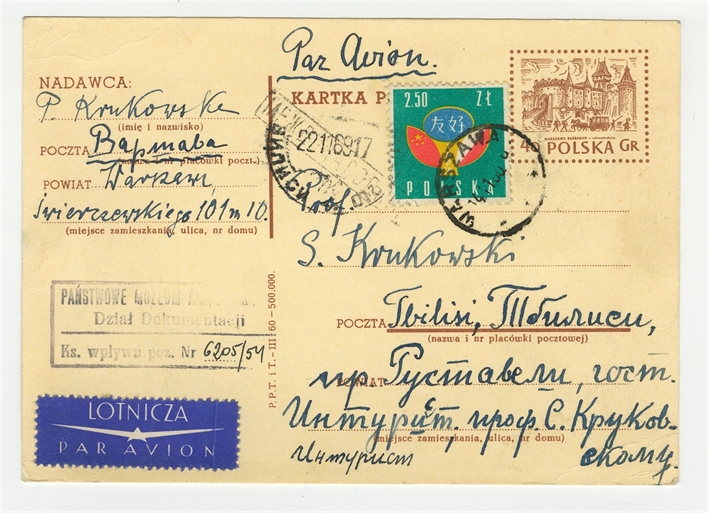 Par Avion.
NADAWCA:
P. Krukowska
(imię i nazwisko)
POCZTA Варшава
(nazwa i nr placówki poczt.)
POWIAT Warszawa
Świerczewskiego 101 m 10.
(miejsce zamieszkania, ulica, nr domu)
KARTKA P
2.50 ZŁ
友好
POLSKA
40 POLSKA GR
WARSZAWA
22116917
Prof.
S. Krukowski
POCZTA Tbilisi, Тбилиси,
(nazwa i nr placówki pocztowej)
POWIAT пр. Руставели, гост.
Интурист, проф. С. Круков-
(miejsce zamieszkania, ulica, nr domu)
скому.
Интурист
PAŃSTWOWE MUZEUM
Dział Dokumentacji
Ks. wpływu poz. Nr 6205/54
P.P.T. i T. - III 60 - 500.000.
LOTNICZA
PAR AVION